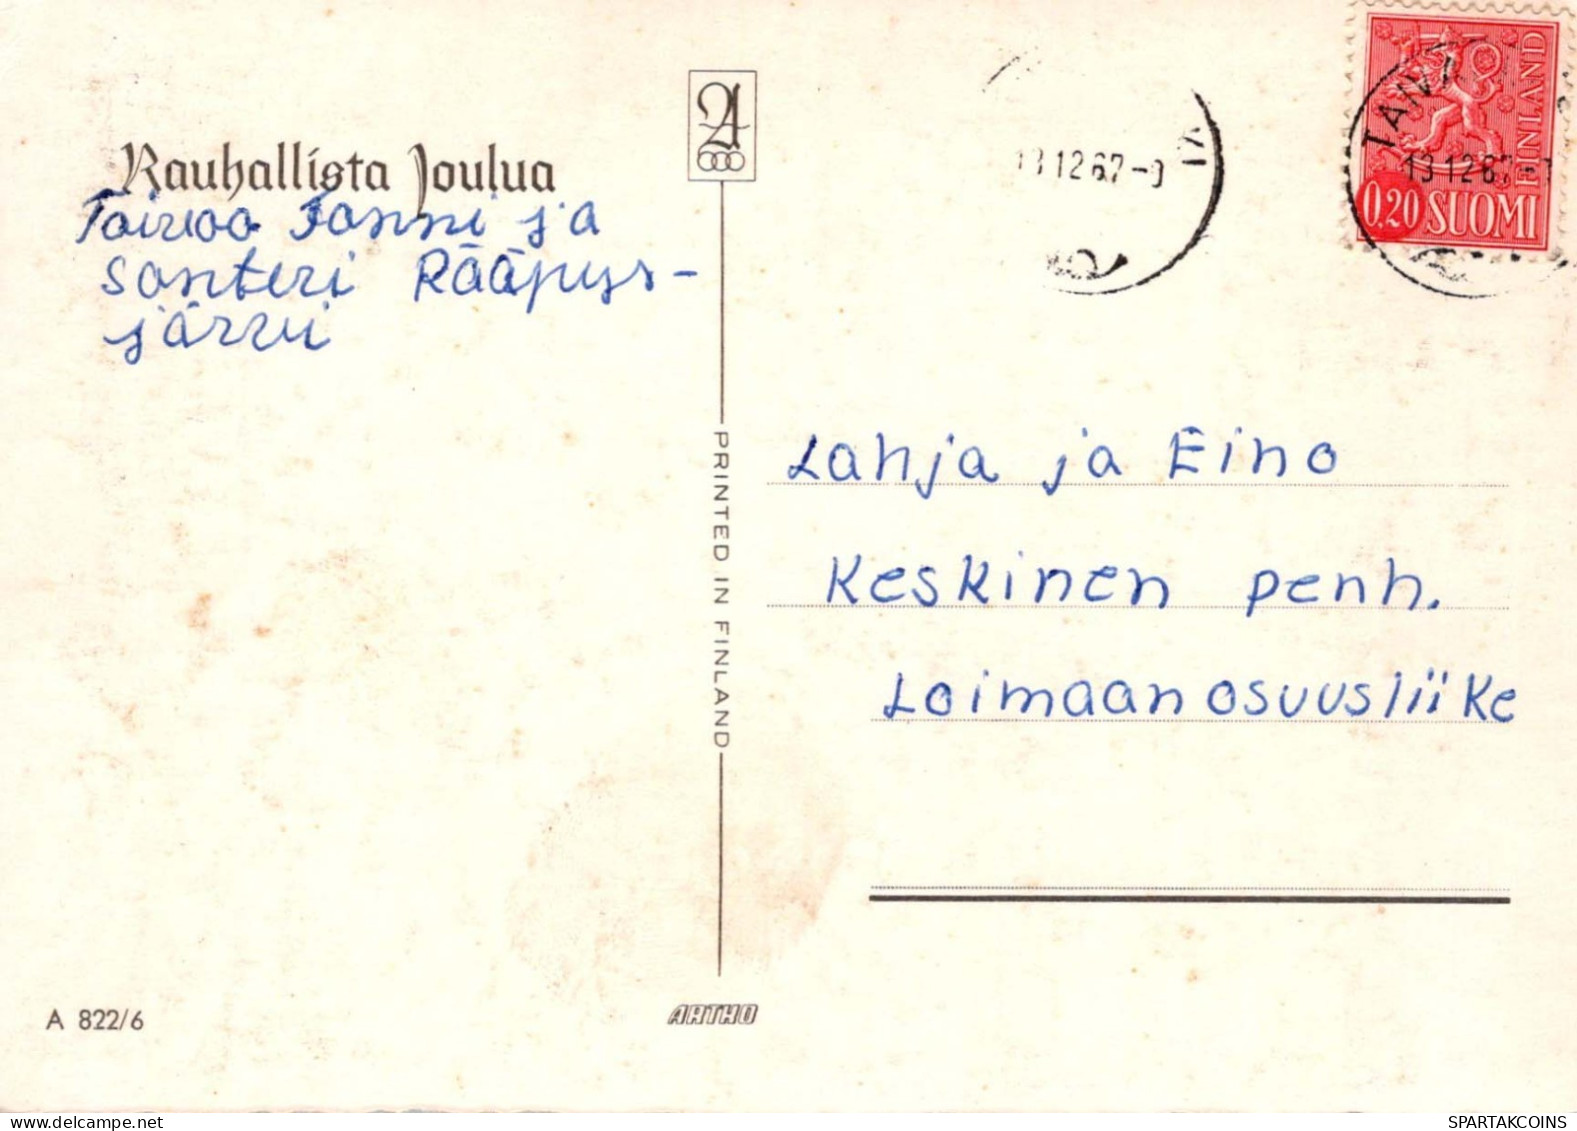 Rauhallista Joulua
Toivoo Fanni ja
Santeri Rääpys-
järvi
A
PRINTED IN FINLAND
13 12 67-9
TAIV
13 12 67-
0.20 SUOMI
FINLAND
Lahja ja Eino
Keskinen penh.
Loimaan osuusliike
A 822/6
ARTHO
SPARTAKCOINS
www.delcampe.net
SPARTAKCOINS